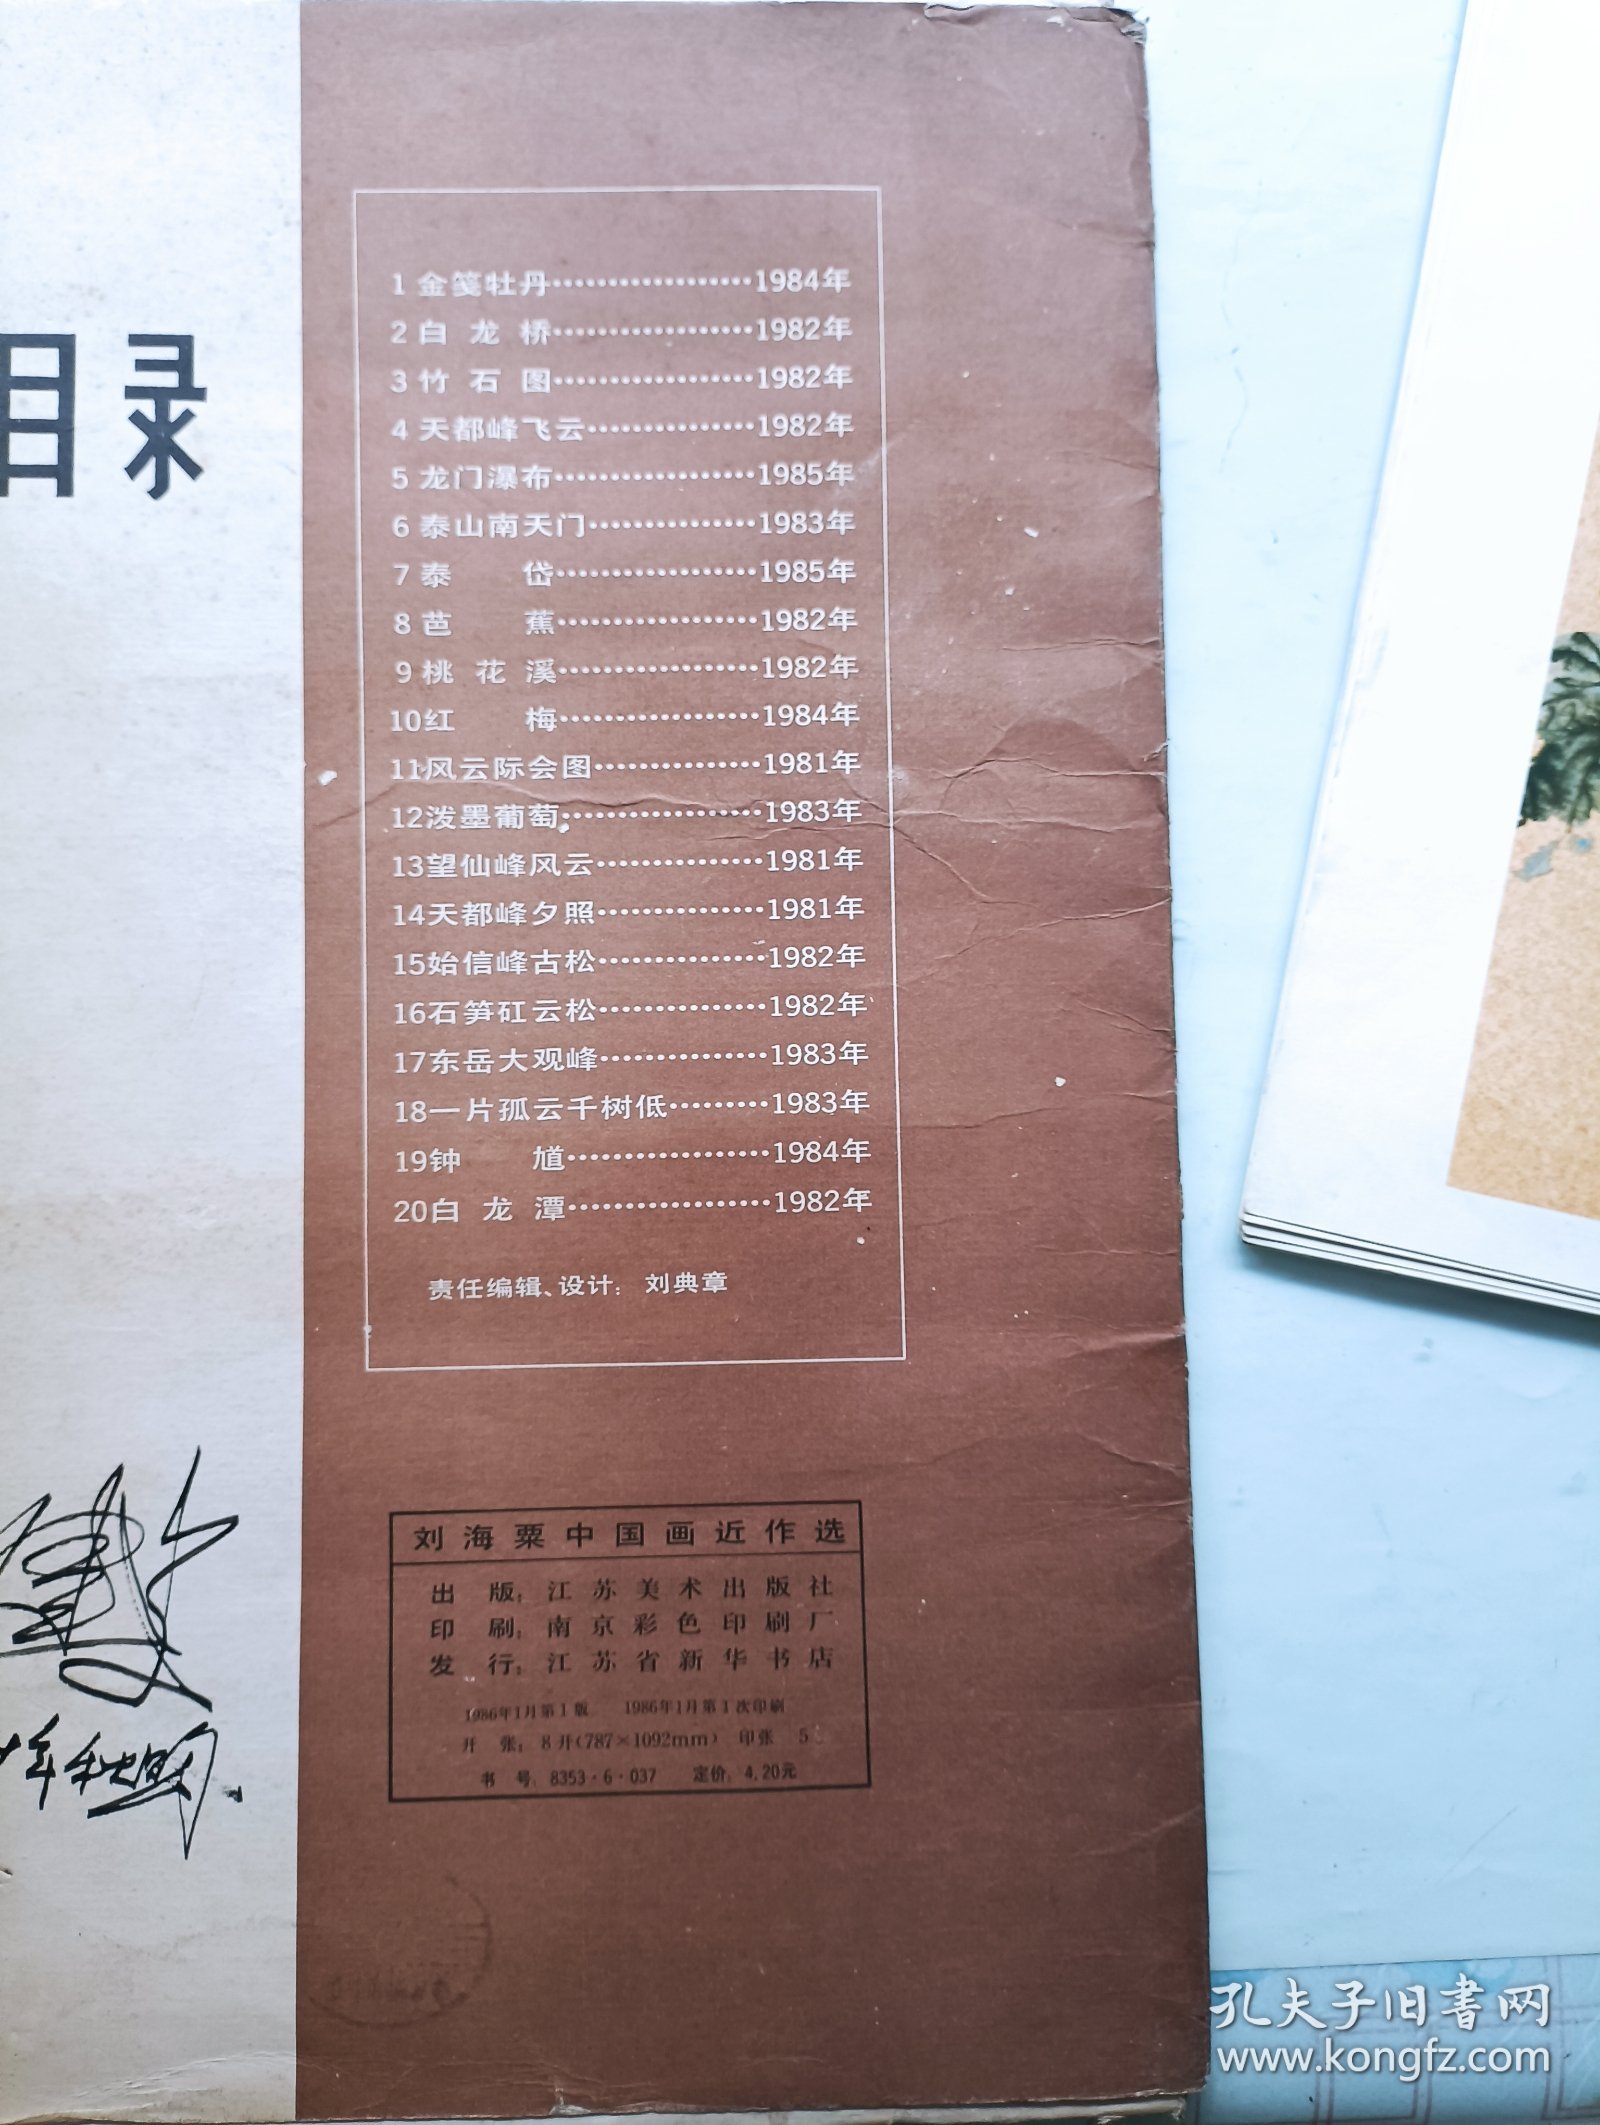 目录
1 金笺牡丹………………1984年
2 白龙桥………………1982年
3 竹石图………………1982年
4 天都峰飞云……………1982年
5 龙门瀑布………………1985年
6 泰山南天门……………1983年
7 泰岱………………1985年
8 芭蕉………………1982年
9 桃花溪………………1982年
10红梅………………1984年
11风云际会图……………1981年
12泼墨葡萄………………1983年
13望仙峰风云……………1981年
14天都峰夕照……………1981年
15始信峰古松……………1982年
16石笋矼云松……………1982年
17东岳大观峰……………1983年
18一片孤云千树低………1983年
19钟馗………………1984年
20白龙潭………………1982年
责任编辑、设计：刘典章
刘海粟中国画近作选
出版：江苏美术出版社
印刷：南京彩色印刷厂
发行：江苏省新华书店
1986年1月第1版 1986年1月第1次印刷
开张：8开(787×1092mm) 印张 5
书号：8353·6·037 定价：4.20元
孔夫子旧书网
www.kongfz.com